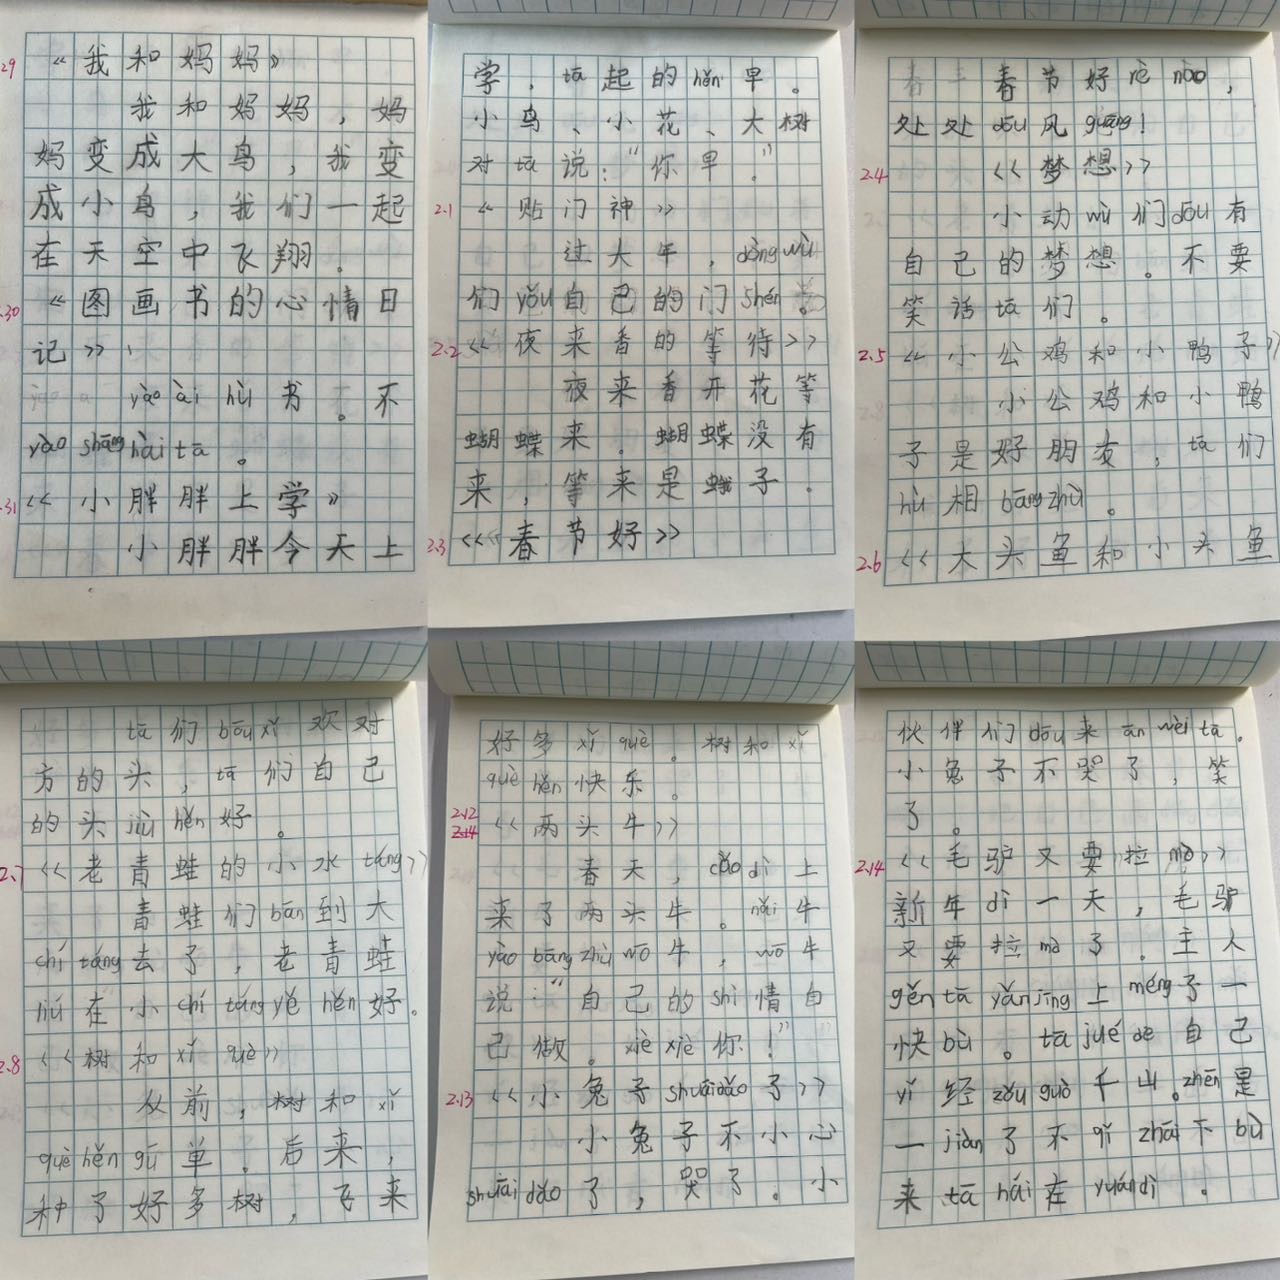 .29 《我和妈妈》
我和妈妈，妈
妈变成大鸟，我变
成小鸟，我们一起
在天空中飞翔。
.30 《图画书的心情日
记》
yào ài hù 书。不
yào shāng hài tā。
.31 《小胖胖上学》
小胖胖今天上
学，tā 起的 hěn 早。
小鸟、小花、大树
对 tā 说：“你早。”
2.1 《贴门神》
过大年，dòng wù
们 yǒu 自己的门 shén。
2.2 《夜来香的等待》
夜来香开花等
蝴蝶来。蝴蝶没有
来，等来是蛾子。
2.3 《春节好》
春节好 rè nào，
处处 dōu 风 guāng！
2.4 《梦想》
小动 wù 们 dōu 有
自己的梦想。不要
笑话 tā 们。
2.5 《小公鸡和小鸭子》
小公鸡和小鸭
子是好朋友，tā 们
hù 相 bāng zhù。
2.6 《大头鱼和小头鱼
tā 们 dōu xǐ 欢对
方的头，tā 们自己
的头 jiù hěn 好。
2.7 《老青蛙的小水 táng》
青蛙们 bān 到大
chí táng 去了，老青蛙
liú 在小 chí táng yě hěn 好。
2.8 《树和 xǐ què》
从前，树和 xǐ
què hěn gū 单。后来，
种了好多树，飞来
好多 xǐ què。树和 xǐ
què hěn 快乐。
2.12
《两头牛》
春天，cǎo dì 上
来了两头牛。nǎi 牛
yào bāng zhù wō 牛，wō 牛
说：“自己的 shì 情自
己做。xiè xiè 你！”
2.13 《小兔子 shuāi dǎo 了》
小兔子不小心
shuāi dǎo 了，哭了。小
伙伴们 dōu 来 ān wèi tā。
小兔子不哭了，笑
了。
2.14 《毛驴又要拉 mò》
新年 dì 一天，毛驴
又要拉 mò 了。主人
gěn tā yǎn jīng 上 méng 了一
快 bù。tā jué de 自己
yǐ 经 zǒu guò 千山。zhēn 是
一 jiàn 了不 qǐ zhāi 下 bù
来 tā hái 在 yuán dì。